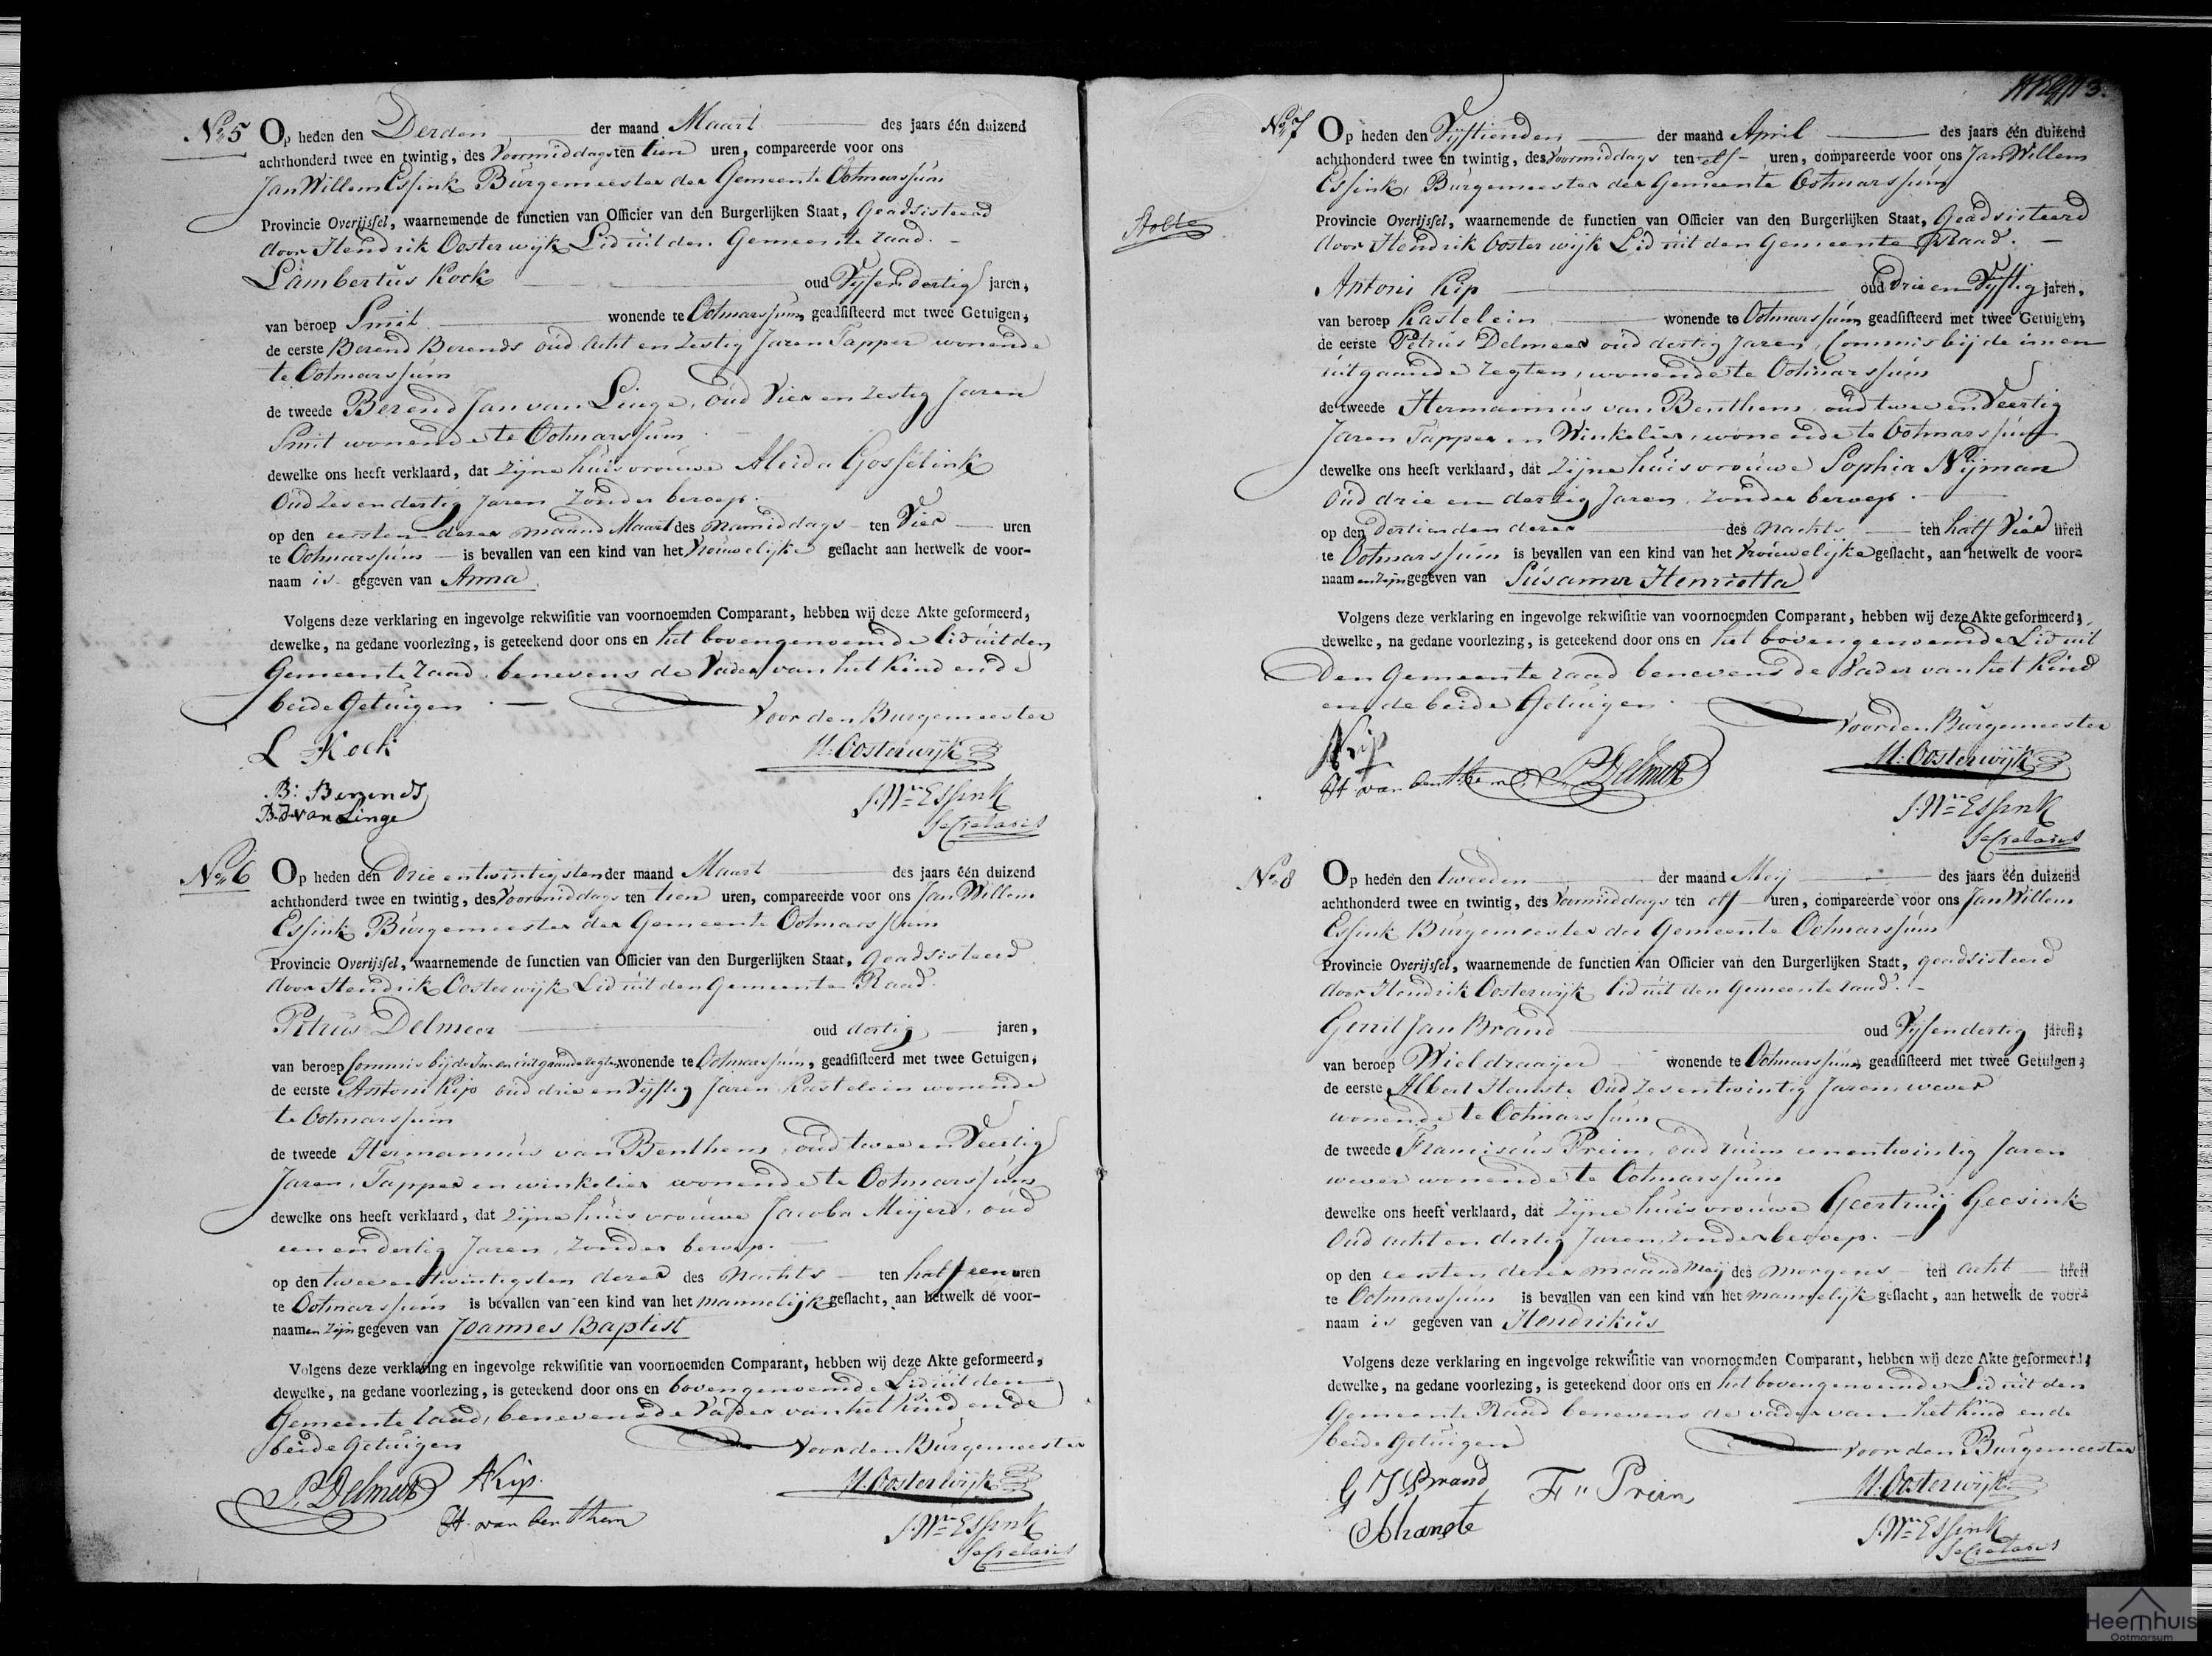 No 5 Op heden den Derden der maand Maart des jaars één duizend
achthonderd twee en twintig, des Voormiddags ten tien uren, compareerde voor ons
Jan Willem Essink Burgemeester der Gemeente Ootmarssum
Provincie Overijssel, waarnemende de functien van Officier van den Burgerlijken Staat, Geadsisteerd
door Hendrik Oosterwijk Lid uit den Gemeente raad.
Lambertus Kock oud Vijfendertig jaren,
van beroep Smit wonende te Ootmarssum, geadsisteerd met twee Getuigen,
de eerste Berend Berends oud acht en zestig Jaren Tapper wonende
te Ootmarssum
de tweede Berend Jan van Linge, oud Vier en zestig Jaren
Smit wonende te Ootmarssum
dewelke ons heeft verklaard, dat zijne huisvrouwe Aleida Gosselink
Oud zesendertig Jaren zonder beroep.
op den eersten dezer maand Maart des namiddags ten Vier uren
te Ootmarssum is bevallen van een kind van het Vrouwelijke geslacht aan hetwelk de voor-
naam is gegeven van Anna
Volgens deze verklaring en ingevolge rekwisitie van voornoemden Comparant, hebben wij deze Akte geformeerd,
dewelke, na gedane voorlezing, is geteekend door ons en het bovengenoemde lid uit den
Gemeente raad, benevens de Vader van het Kind en de
beide Getuigen
Voor den Burgemeester
L Kock
H. Oosterwijk
B: Berends
J. Wm Essink
B.J. van Linge
Secretaris
No 6 Op heden den drie en twintigsten der maand Maart des jaars één duizend
achthonderd twee en twintig, des Voormiddags ten tien uren, compareerde voor ons Jan Willem
Essink Burgemeester der Gemeente Ootmarssum
Provincie Overijssel, waarnemende de functien van Officier van den Burgerlijken Staat, Geadsisteerd
door Hendrik Oosterwijk Lid uit den Gemeente Raad.
Petrus Delmeer oud dertig jaren,
van beroep Commis bij de In en uitgaande regten wonende te Ootmarssum, geadsisteerd met twee Getuigen,
de eerste Antoni Kip oud drie en Vijftig Jaren Kastelein wonende
te Ootmarssum
de tweede Hermannus van Benthem, oud twee en Veertig
Jaren, Tapper en winkelier wonende te Ootmarssum
dewelke ons heeft verklaard, dat zijne huisvrouwe Jacoba Meijers, oud
een en dertig Jaren, zonder beroep.
op den twee en twintigsten dezer des Nachts ten half een uren
te Ootmarssum is bevallen van een kind van het mannelijk geslacht, aan hetwelk de voor-
naamen zijn gegeven van Joannes Baptist
Volgens deze verklaring en ingevolge rekwisitie van voornoemden Comparant, hebben wij deze Akte geformeerd,
dewelke, na gedane voorlezing, is geteekend door ons en bovengenoemde Lid uit den
Gemeente raad, benevens de Vader van het Kind en de
beide Getuigen
Voor den Burgemeester
P. Delmeer A Kip
H. Oosterwijk
H. van benthem
J. Wm Essink
Secretaris
3.
No 7 Op heden den Vijftienden der maand April des jaars één duizend
achthonderd twee en twintig, des Voormiddags ten elf uren, compareerde voor ons Jan Willem
Essink, Burgemeester der Gemeente Ootmarssum
Provincie Overijssel, waarnemende de functien van Officier van den Burgerlijken Staat, Geadsisteerd
door Hendrik Oosterwijk Lid uit den Gemeente Raad.
Antoni Kip oud drie en Vijftig jaren,
van beroep Kastelein wonende te Ootmarssum geadsisteerd met twee Getuigen,
de eerste Petrus Delmeer oud dertig Jaren, Commis bij de in en
uitgaande regten, wonende te Ootmarssum
de tweede Hermannus van Benthem, oud twee en Veertig
Jaren Tapper en Winkelier, wonende te Ootmarssum
dewelke ons heeft verklaard, dat zijne huisvrouwe Sophia Nijman
Oud drie en dertig Jaren, zonder beroep.
op den dertienden dezer des Nachts ten half Vier uren
te Ootmarssum is bevallen van een kind van het Vrouwelijke geslacht, aan hetwelk de voor-
naam en zijn gegeven van Susanna Henrietta
Volgens deze verklaring en ingevolge rekwisitie van voornoemden Comparant, hebben wij deze Akte geformeerd,
dewelke, na gedane voorlezing, is geteekend door ons en het bovengenoemde Lid uit
Den Gemeente raad benevens de Vader van het Kind
en de beide Getuigen
Voor den Burgemeester
Kip
H. Oosterwijk
H. van benthem P. Delmeer
J. Wm Essink
Secretaris
No 8 Op heden den tweeden der maand Meij des jaars één duizend
achthonderd twee en twintig, des Voormiddags ten elf uren, compareerde voor ons Jan Willem
Essink Burgemeester der Gemeente Ootmarssum
Provincie Overijssel, waarnemende de functien van Officier van den Burgerlijken Staat, geadsisteerd
door Hendrik Oosterwijk lid uit den Gemeente raad.
Gerrit Jan Brand oud Vijfendertig jaren,
van beroep Wieldraaijer wonende te Ootmarssum, geadsisteerd met twee Getuigen,
de eerste Albert Oud zes en twintig Jaren, wever
wonende te Ootmarssum
de tweede Franciscus Prein, oud ruim een en twintig Jaren
wever wonende te Ootmarssum
dewelke ons heeft verklaard, dat zijne huisvrouwe Geertruij Geesink
Oud acht en dertig Jaren, zonder beroep.
op den eersten dezer maand Meij des morgens ten acht uren
te Ootmarssum is bevallen van een kind van het mannelijk geslacht, aan hetwelk de voor-
naam is gegeven van Hendrikus
Volgens deze verklaring en ingevolge rekwisitie van voornoemden Comparant, hebben wij deze Akte geformeerd,
dewelke, na gedane voorlezing, is geteekend door ons en het bovengenoemde Lid uit den
Gemeente Raad benevens de vader van het Kind en de
beide Getuigen
Voor den Burgemeester
G J Brand F" Prein
H. Oosterwijk
J. Wm Essink
Secretaris
Heemhuis
Ootmarsum